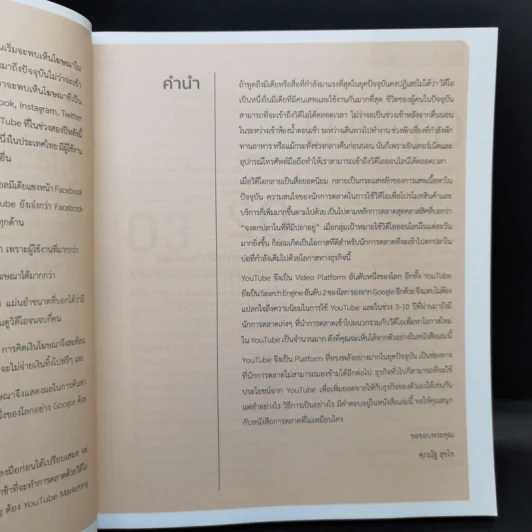 นเริ่มจะพบเห็นโฆษณาใน
มาถึงปัจจุบันไม่ว่าจะเข้า
าจะพบเห็นโฆษณาที่เป็น
ook, Instagram, Twitter
Tube ที่ในช่วงสองปีหลังนี้
นึ่งในประเทศไทย มีผู้ใช้งาน
อื่น
ยลมีเดียแซงหน้า Facebook
ube ยังเจ๋งกว่า Facebook
ทุกด้าน
า เพราะผู้ใช้งานที่มากกว่า
ฆษณาได้มากกว่า
แม่นยำขนาดที่บอกได้ว่ามี
นดูวิดีโอจนจบกี่คน
การคิดเงินโฆษณาจึงสะท้อน
จะไม่จ่ายเงินทิ้งไปฟรีๆ เลย
ษณาจึงแสดงผลในการค้นหา
ึ่งของโลกอย่าง Google ด้วย
ลงมือก่อนได้เปรียบเสมอ
ช้าที่จะทำการตลาดด้วยวิดีโอ
g ต้อง YouTube Marketing
คำนำ
ถ้าพูดถึงมีเดียหรือสื่อที่กำลังมาแรงที่สุดในยุคปัจจุบันคงปฏิเสธไม่ได้ว่า วิดีโอ
เป็นหนึ่งในมีเดียที่มีคนเสพและใช้งานกันมากที่สุด ชีวิตของผู้คนในปัจจุบัน
สามารถที่จะเข้าถึงวิดีโอได้ตลอดเวลา ไม่ว่าจะเป็นช่วงเช้าหลังจากตื่นนอน
ในระหว่างเข้าห้องน้ำตอนเช้า ระหว่างเดินทางไปทำงาน ช่วงพักเที่ยงที่กำลังพัก
ทานอาหาร หรือแม้กระทั่งช่วงกลางคืนก่อนนอน นั่นก็เพราะอินเทอร์เน็ตและ
อุปกรณ์โทรศัพท์มือถือทำให้เราสามารถเข้าถึงวิดีโอออนไลน์ได้ตลอดเวลา
เมื่อวิดีโอกลายเป็นสื่อยอดนิยม กลายเป็นกระแสหลักของการเสพเนื้อหาใน
ปัจจุบัน ความสนใจของนักการตลาดในการใช้วิดีโอเพื่อโปรโมทสินค้าและ
บริการก็เพิ่มมากขึ้นตามไปด้วย เป็นไปตามหลักการตลาดสุดคลาสสิคที่บอกว่า
“จงตกปลาในที่ที่มีปลาอยู่” เมื่อกลุ่มเป้าหมายใช้วิดีโอออนไลน์ในแต่ละวัน
มากยิ่งขึ้น ก็ย่อมเกิดเป็นโอกาสที่ดีสำหรับนักการตลาดที่จะเข้าไปตกปลาใน
บ่อที่กำลังเติมไปด้วยโอกาสทางธุรกิจนี้
YouTube จึงเป็น Video Platform อันดับหนึ่งของโลก อีกทั้ง YouTube
ยังเป็น Search Engine อันดับ 2 ของโลก รองจาก Google อีกด้วย จึงแทบไม่ต้อง
แปลกใจถึงความนิยมในการใช้ YouTube และในช่วง 5-10 ปีที่ผ่านมายังมี
นักการตลาดเก่งๆ ที่นำการตลาดเข้าไปผนวกรวมกับวิดีโอเพื่อหาโอกาสใหม่
ใน YouTube เป็นจำนวนมาก ดังที่คุณจะเห็นได้จากตัวอย่างในหนังสือเล่มนี้
YouTube จึงเป็น Platform ที่ทรงพลังอย่างมากในยุคปัจจุบัน เป็นช่องทาง
ที่นักการตลาดไม่สามารถมองข้ามได้อีกต่อไป ธุรกิจทั่วไปก็สามารถที่จะใช้
ประโยชน์จาก YouTube เพื่อเพิ่มยอดขายให้กับธุรกิจของตัวเองได้เช่นกัน
แต่ทำอย่างไร วิธีการเป็นอย่างไร มีคำตอบอยู่ในหนังสือเล่มนี้ ขอให้คุณสนุก
กับหนังสือการตลาดที่ไม่เหมือนใคร
ขอขอบพระคุณ
ศุภณัฐ สุขโข